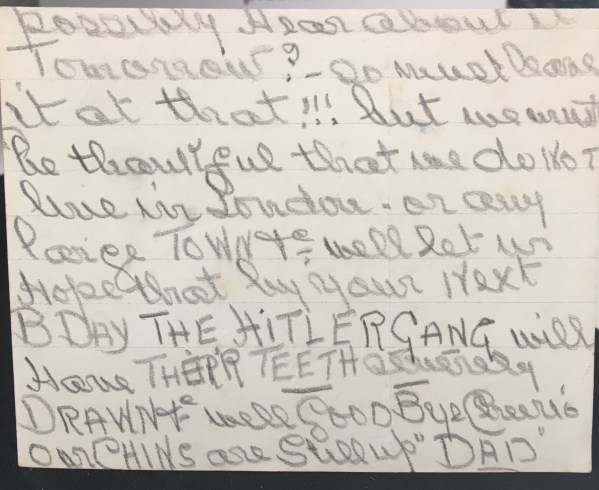 possibly Hear about it
Tomorrow? - so must leave
it at that!!! but we must
be thankful that we do NOT
live in London - or any
large TOWN &c well let us
Hope that by your Next
B DAY THE HITLER GANG will
Have THEIR TEETH severely
DRAWN &c well GOOD Bye Cheerio
our CHINS are Still up "DAD"